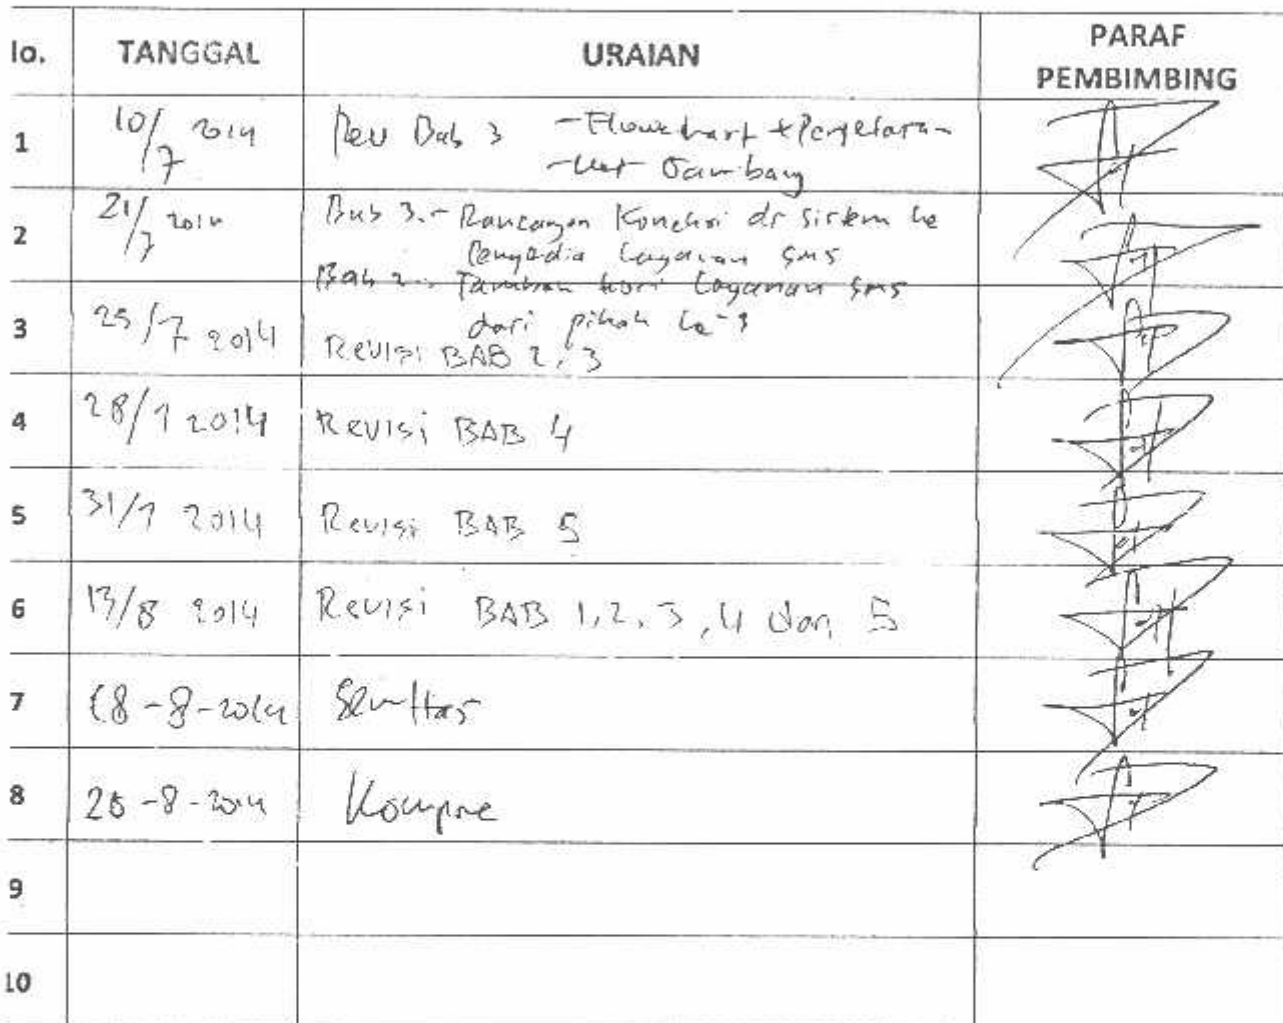 lo. TANGGAL URAIAN PARAF
PEMBIMBING
1 10/7 2014 Rev Bab 3 - Flowchart + Penjelasan
-
2 21/7 2014 Bab 3. - Rancangan Koneksi dr sistem ke
Penyedia Layanan SMS
Bab 2. - Tambah teori Layanan SMS
dari pihak ke-3
3 25/7 2014 Revisi BAB 2, 3
4 28/7 2014 Revisi BAB 4
5 31/7 2014 Revisi BAB 5
6 13/8 2014 Revisi BAB 1, 2, 3, 4 dan 5
7 18-8-2014
8 -8-2014 Kompre
9
10